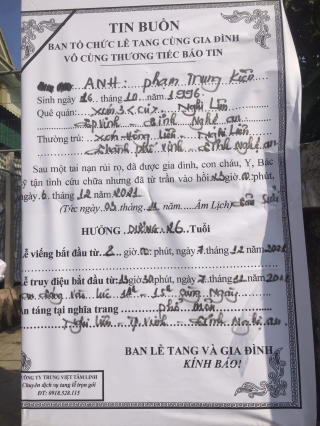 TIN BUỒN
BAN TỔ CHỨC LỄ TANG CÙNG GIA ĐÌNH
VÔ CÙNG THƯƠNG TIẾC BÁO TIN
ANH: phạm Trung Kiên
Sinh ngày 26 tháng 10 năm 1996
Quê quán: Xóm 3 Nghi Liên
TP Vinh - Tỉnh Nghệ an
Thường trú: Xóm Nghi Liên
thành phố vinh - tỉnh Nghệ an
Sau một tai nạn rủi ro, đã được gia đình, con cháu, Y, Bác
sỹ tận tình cứu chữa nhưng đã từ trần vào hồi giờ phút,
ngày 6 tháng 12 năm 2021
(Tức ngày 03 tháng 11 năm Âm Lịch)
HƯỞNG DƯƠNG 26 Tuổi
Lễ viếng bắt đầu từ 2 giờ phút, ngày 7 tháng 12 năm 2021
Lễ truy điệu bắt đầu từ giờ 30 phút, ngày 7 tháng 12 năm 2021
lúc cùng Ngày
An táng tại nghĩa trang
Nghi Liên - TP Vinh - tỉnh Nghệ an
BAN LỄ TANG VÀ GIA ĐÌNH
KÍNH BÁO!
CÔNG TY TRUNG VIỆT TÂM LINH
Chuyên dịch vụ tang lễ trọn gói
ĐT: 0918.528.115